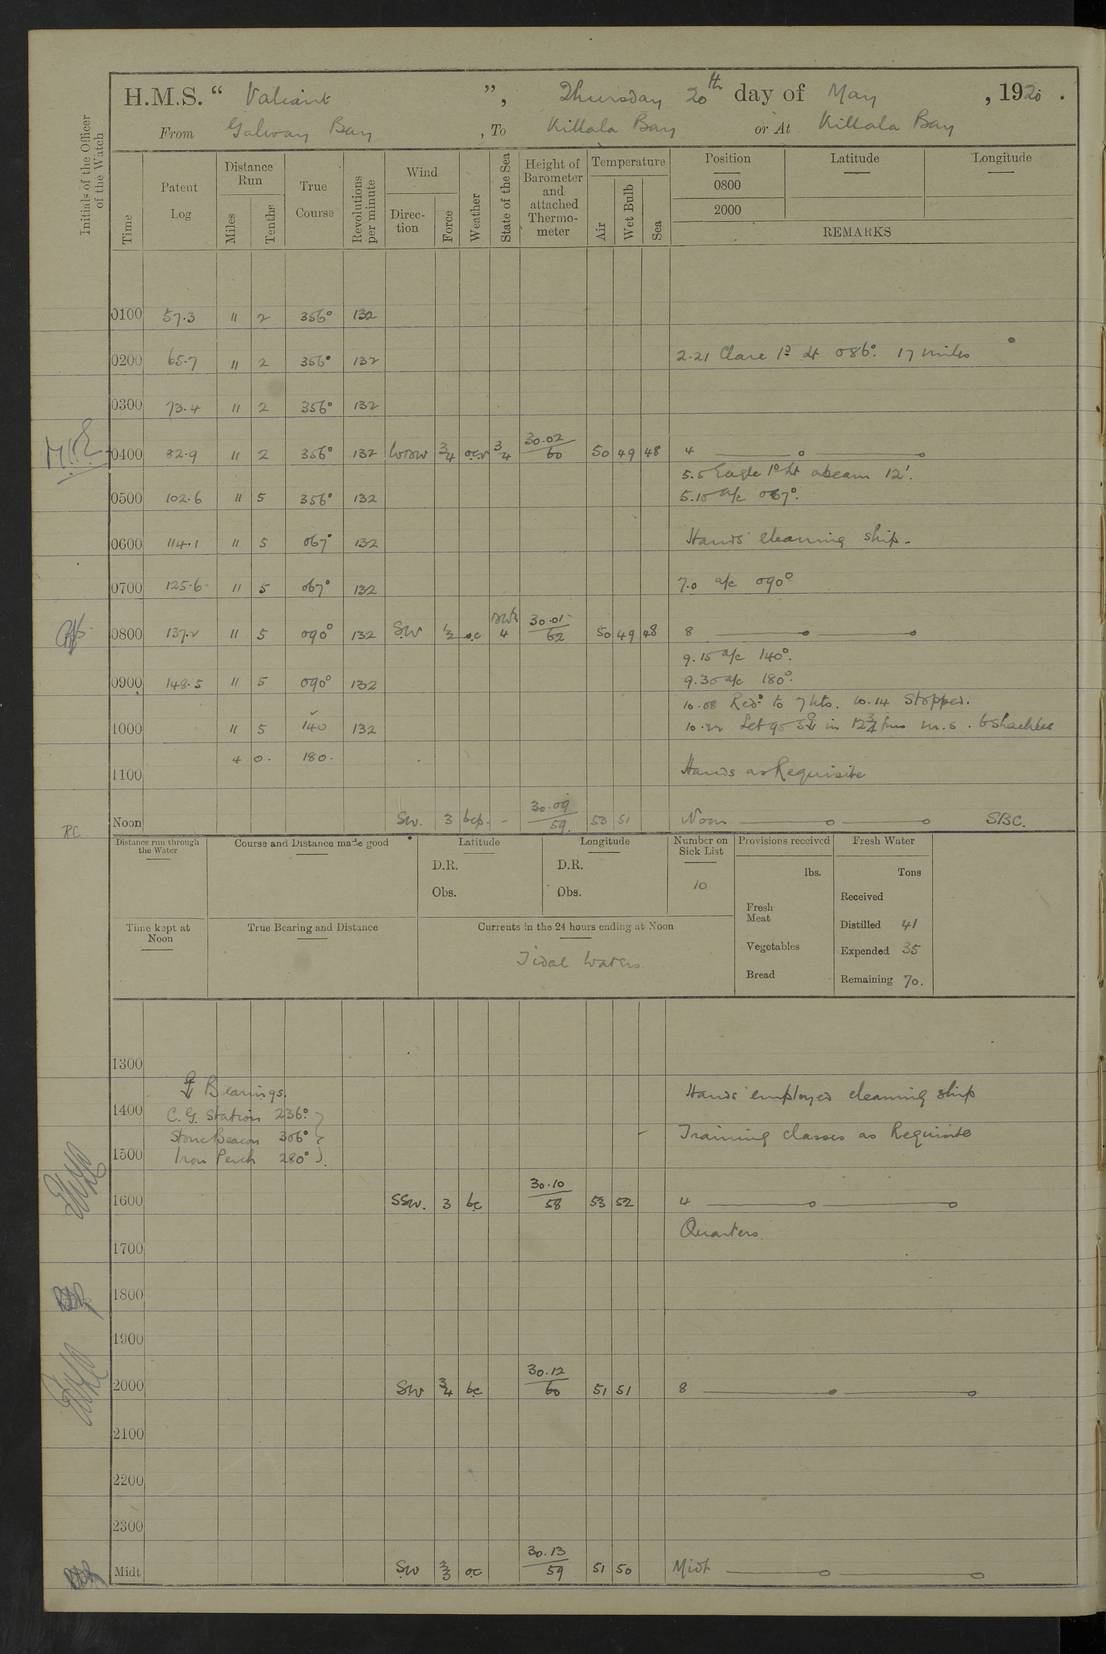 H.M.S. “ Valiant ”, Thursday 20th day of May , 1920 .
From Galway Bay , To Killala Bay or At Killala Bay
Initials of the Officer of the Watch
Time
Patent Log
Distance Run
Miles
Tenths
True Course
Revolutions per minute
Wind
Direction
Force
Weather
State of the Sea
Height of Barometer and attached Thermometer
Temperature
Air
Wet Bulb
Sea
Position
Latitude
Longitude
0800
2000
REMARKS
0100 57.3 " 2 356° 132
0200 65.7 " 2 356° 132 2.21 Clare Id Lt 086°. 17 miles
0300 73.4 " 2 356° 132
0400 82.9 " 2 356° 132 WSW 3/4 3/4 30.02/60 50 49 48 4
5.5 Eagle Id Lt abeam 12'.
0500 102.6 " 5 356° 132 5.15 a/c 067°.
0600 114.1 " 5 067° 132 Hands cleaning ship.
0700 125.6 " 5 067° 132 7.0 a/c 090°
0800 137.2 " 5 090° 132 SW 1/2 oc 4 30.01/62 50 49 48 8
9.15 a/c 140°.
0900 148.5 " 5 090° 132 9.30 a/c 180°.
10.08 Red. to 7 kts. 10.14 Stopped.
1000 " 5 140 132 10.22 Let go in 12¾ fms m.s. 6 shackles
4 0. 180.
1100 Hands as Requisite
Noon SW. 3 bcp. - 30.09/59. 53 51 Noon SBC.
Distance run through the Water
Course and Distance made good
Latitude
D.R.
Obs.
Longitude
D.R.
Obs.
Number on Sick List
10
Provisions received
lbs.
Fresh Meat
Vegetables
Bread
Fresh Water
Tons
Received
Distilled 41
Expended 35
Remaining 70.
Time kept at Noon
True Bearing and Distance
Currents in the 24 hours ending at Noon
Tidal Waters
1300
Bearings. Hands employed cleaning ship
1400 C.G. Station 236°
Stone Beacon 306° Training classes as Requisite
1500 Iron Perch 280°
1600 SSW. 3 bc 30.10/58 53 52 4
Quarters.
1700
1800
1900
2000 SW 3/4 bc 30.12/60 51 51 8
2100
2200
2300
Midt SW 3/3 oc 30.13/59 51 50 Midt